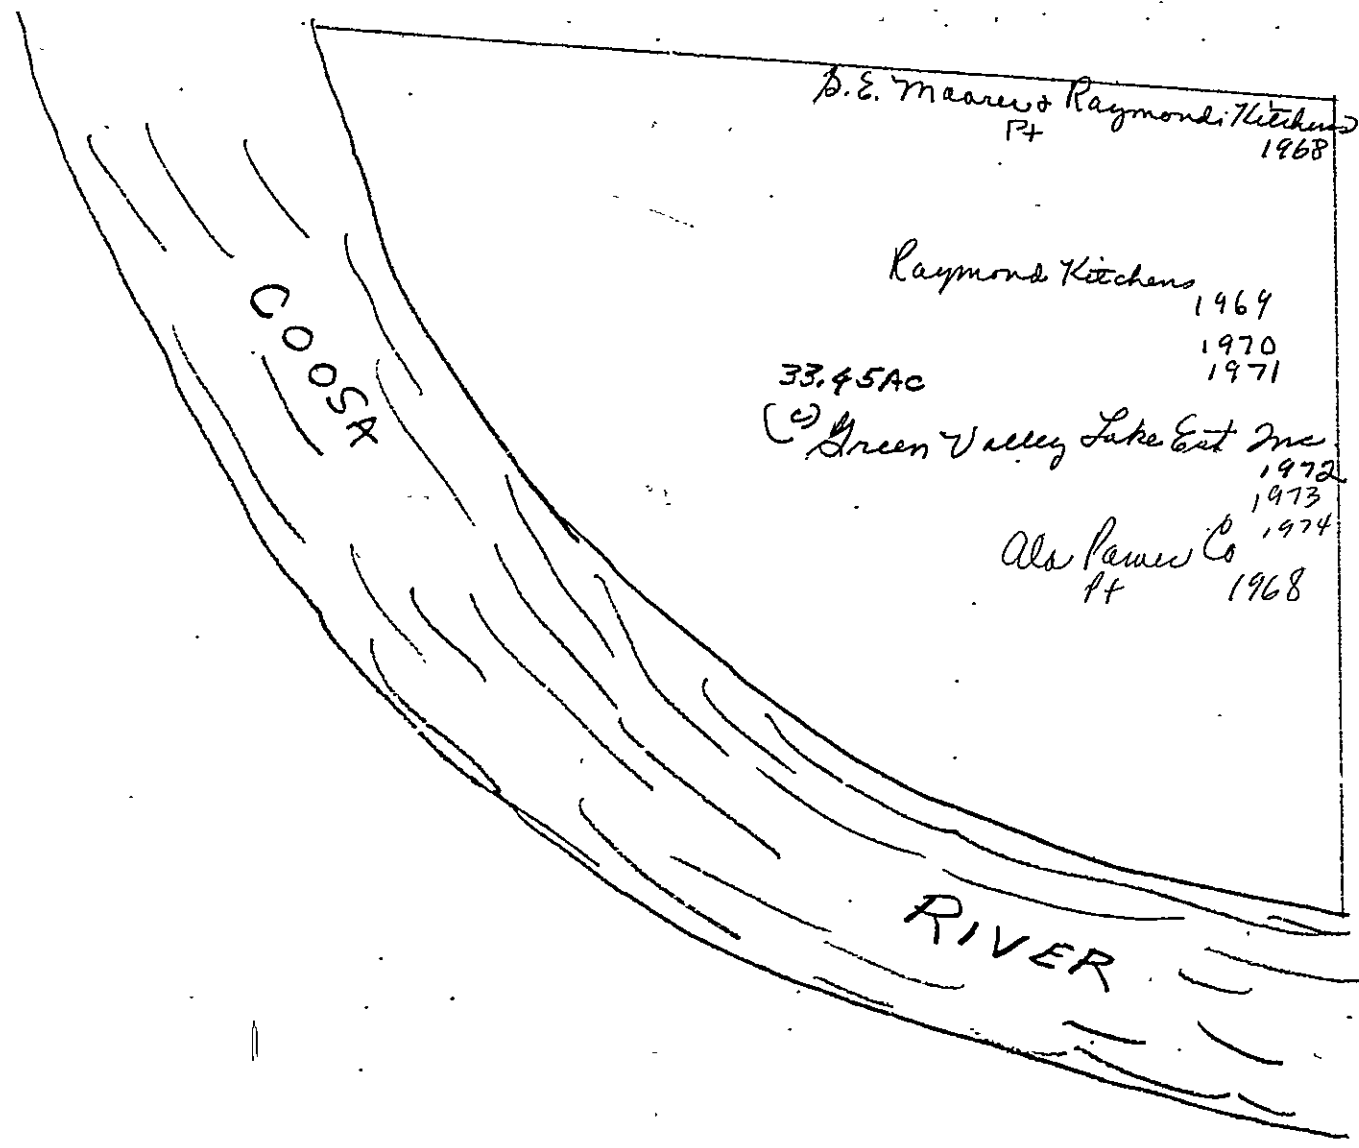 B.E. Moore & Raymond Kitchens
Pt
1968
Raymond Kitchens
1969
1970
1971
33.45AC
(c) Green Valley Lake Est Inc
1972
1973
1974
Ala Power Co
Pt 1968
COOSA
RIVER